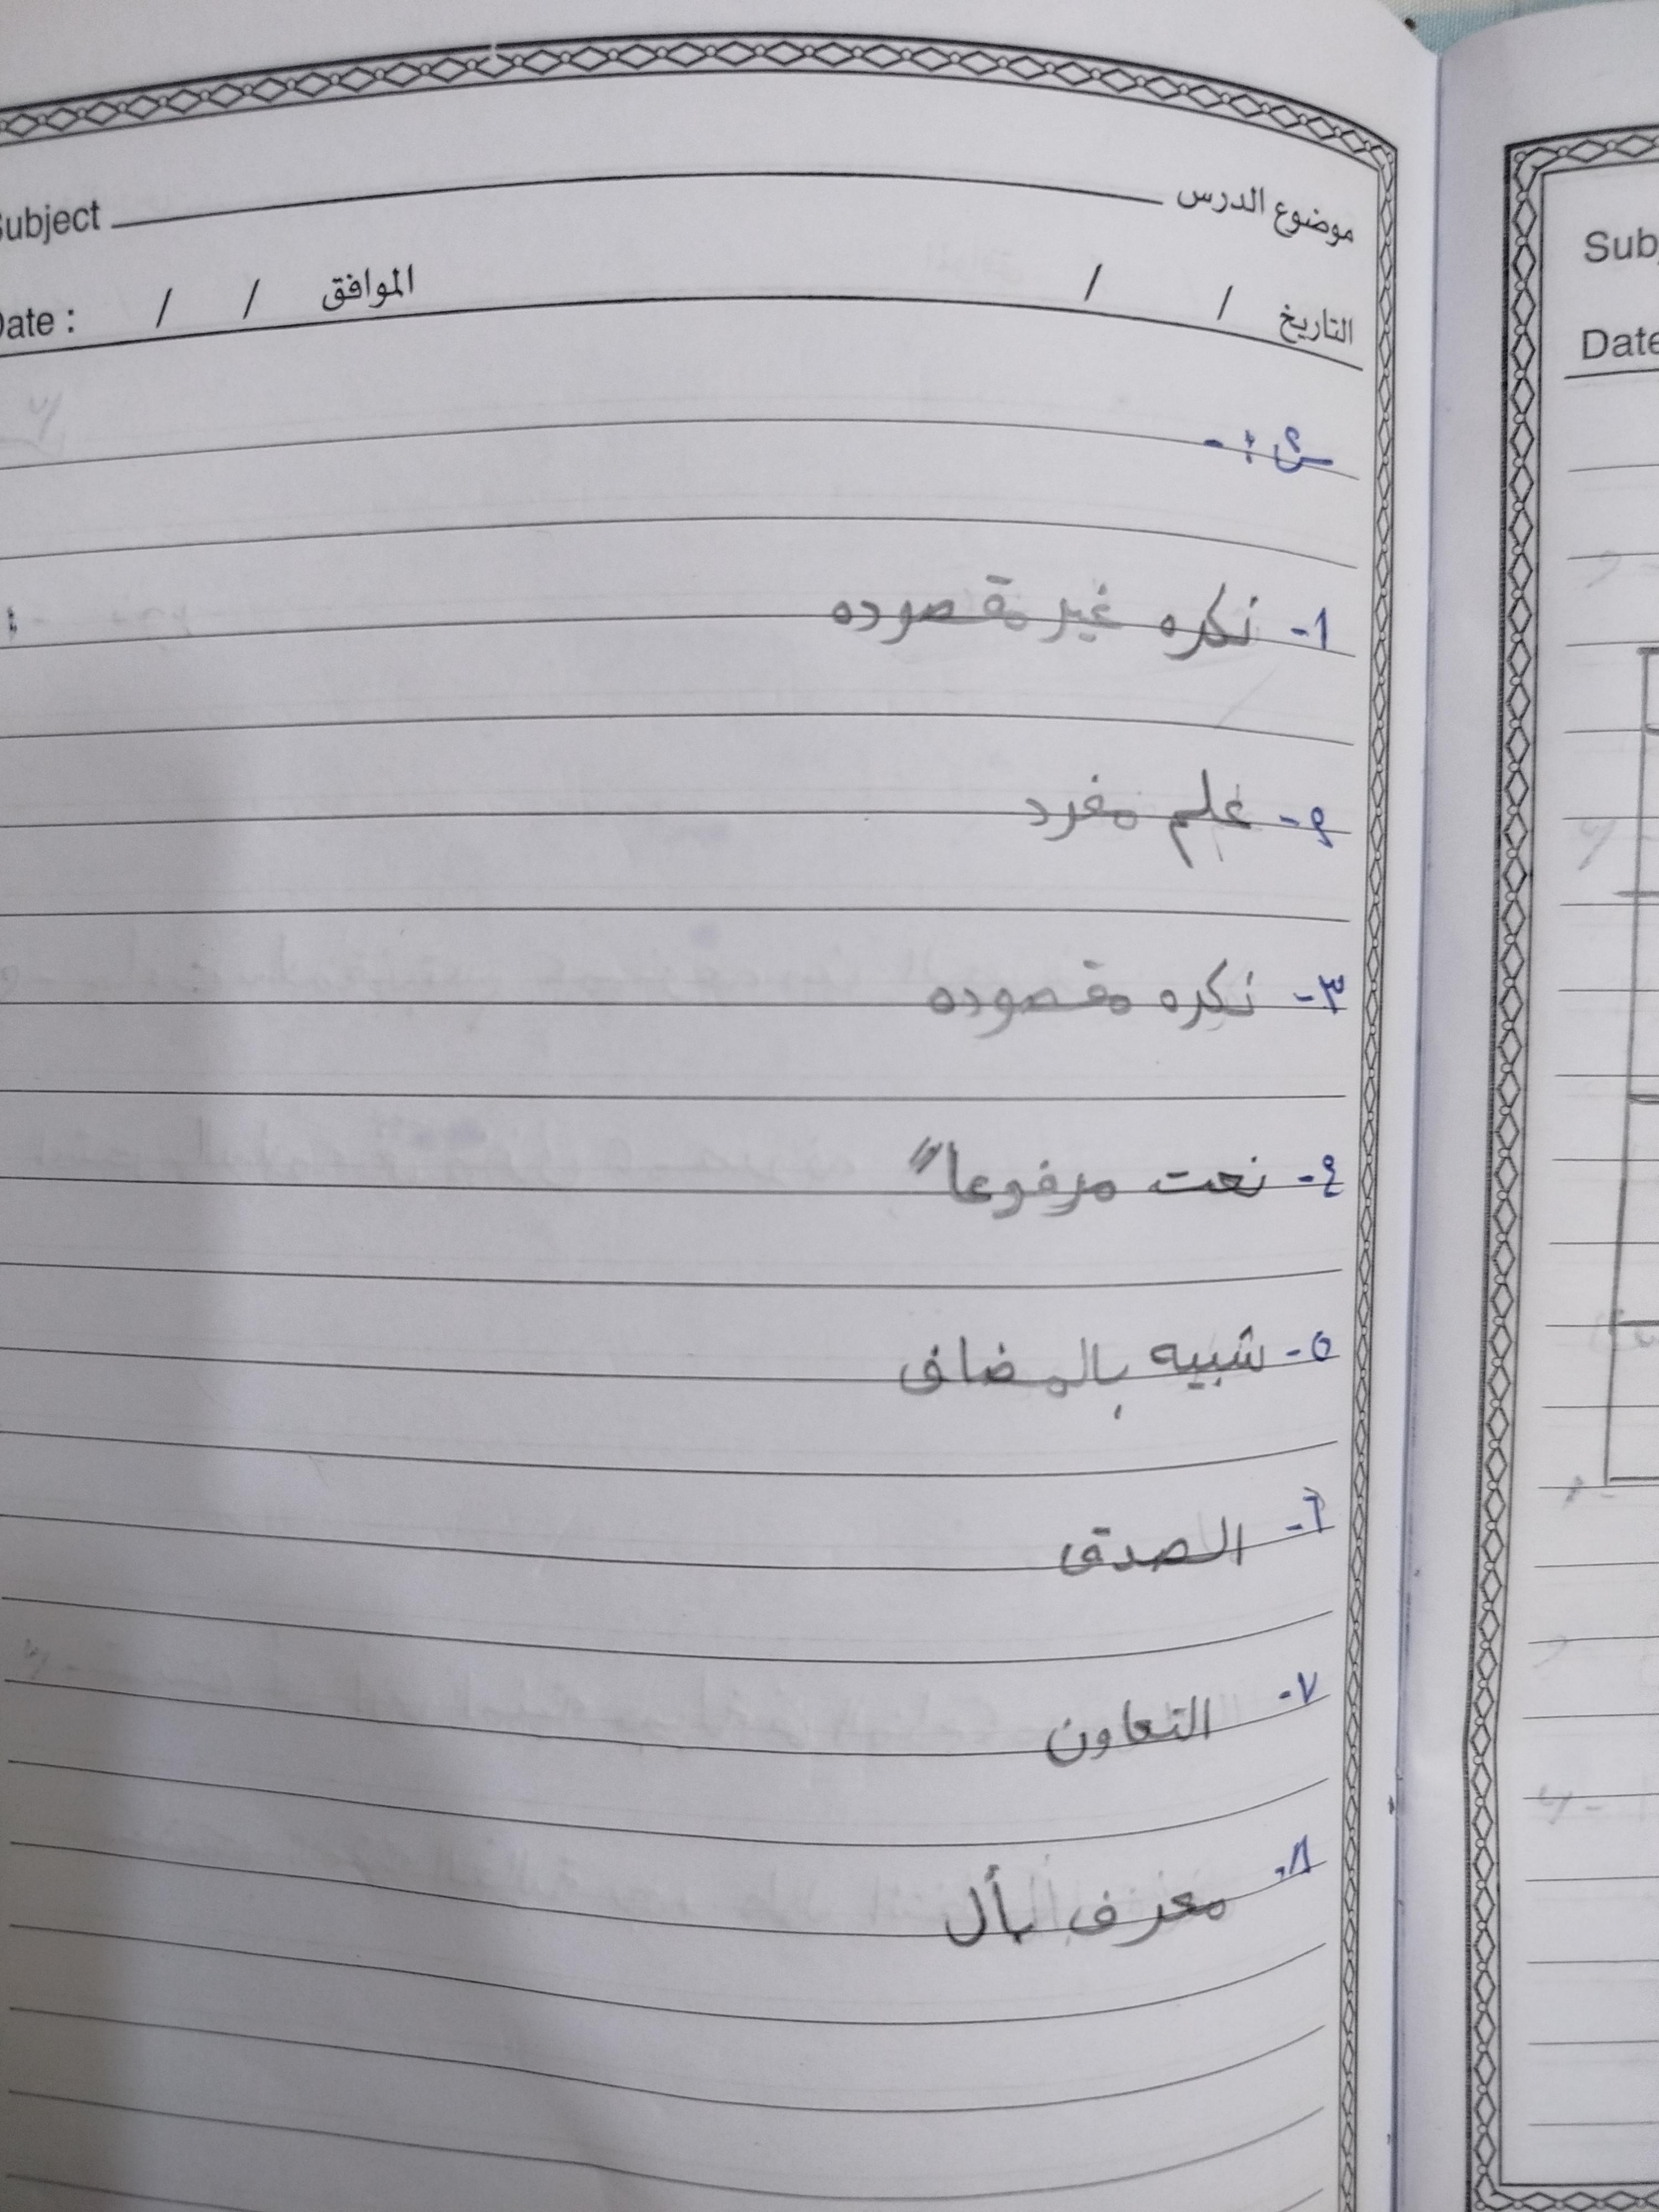 موضوع الدرس Subject
التاريخ / / الموافق / / Date :
١- نكره غير مقصوده
٢- علم مفرد
٣- نكره مقصوده
٤- نعت مرفوعا"
٥- شبيه بالمضاف
٦- الصدق
٧- التعاون
٨- معرف بأل
Sub
Date